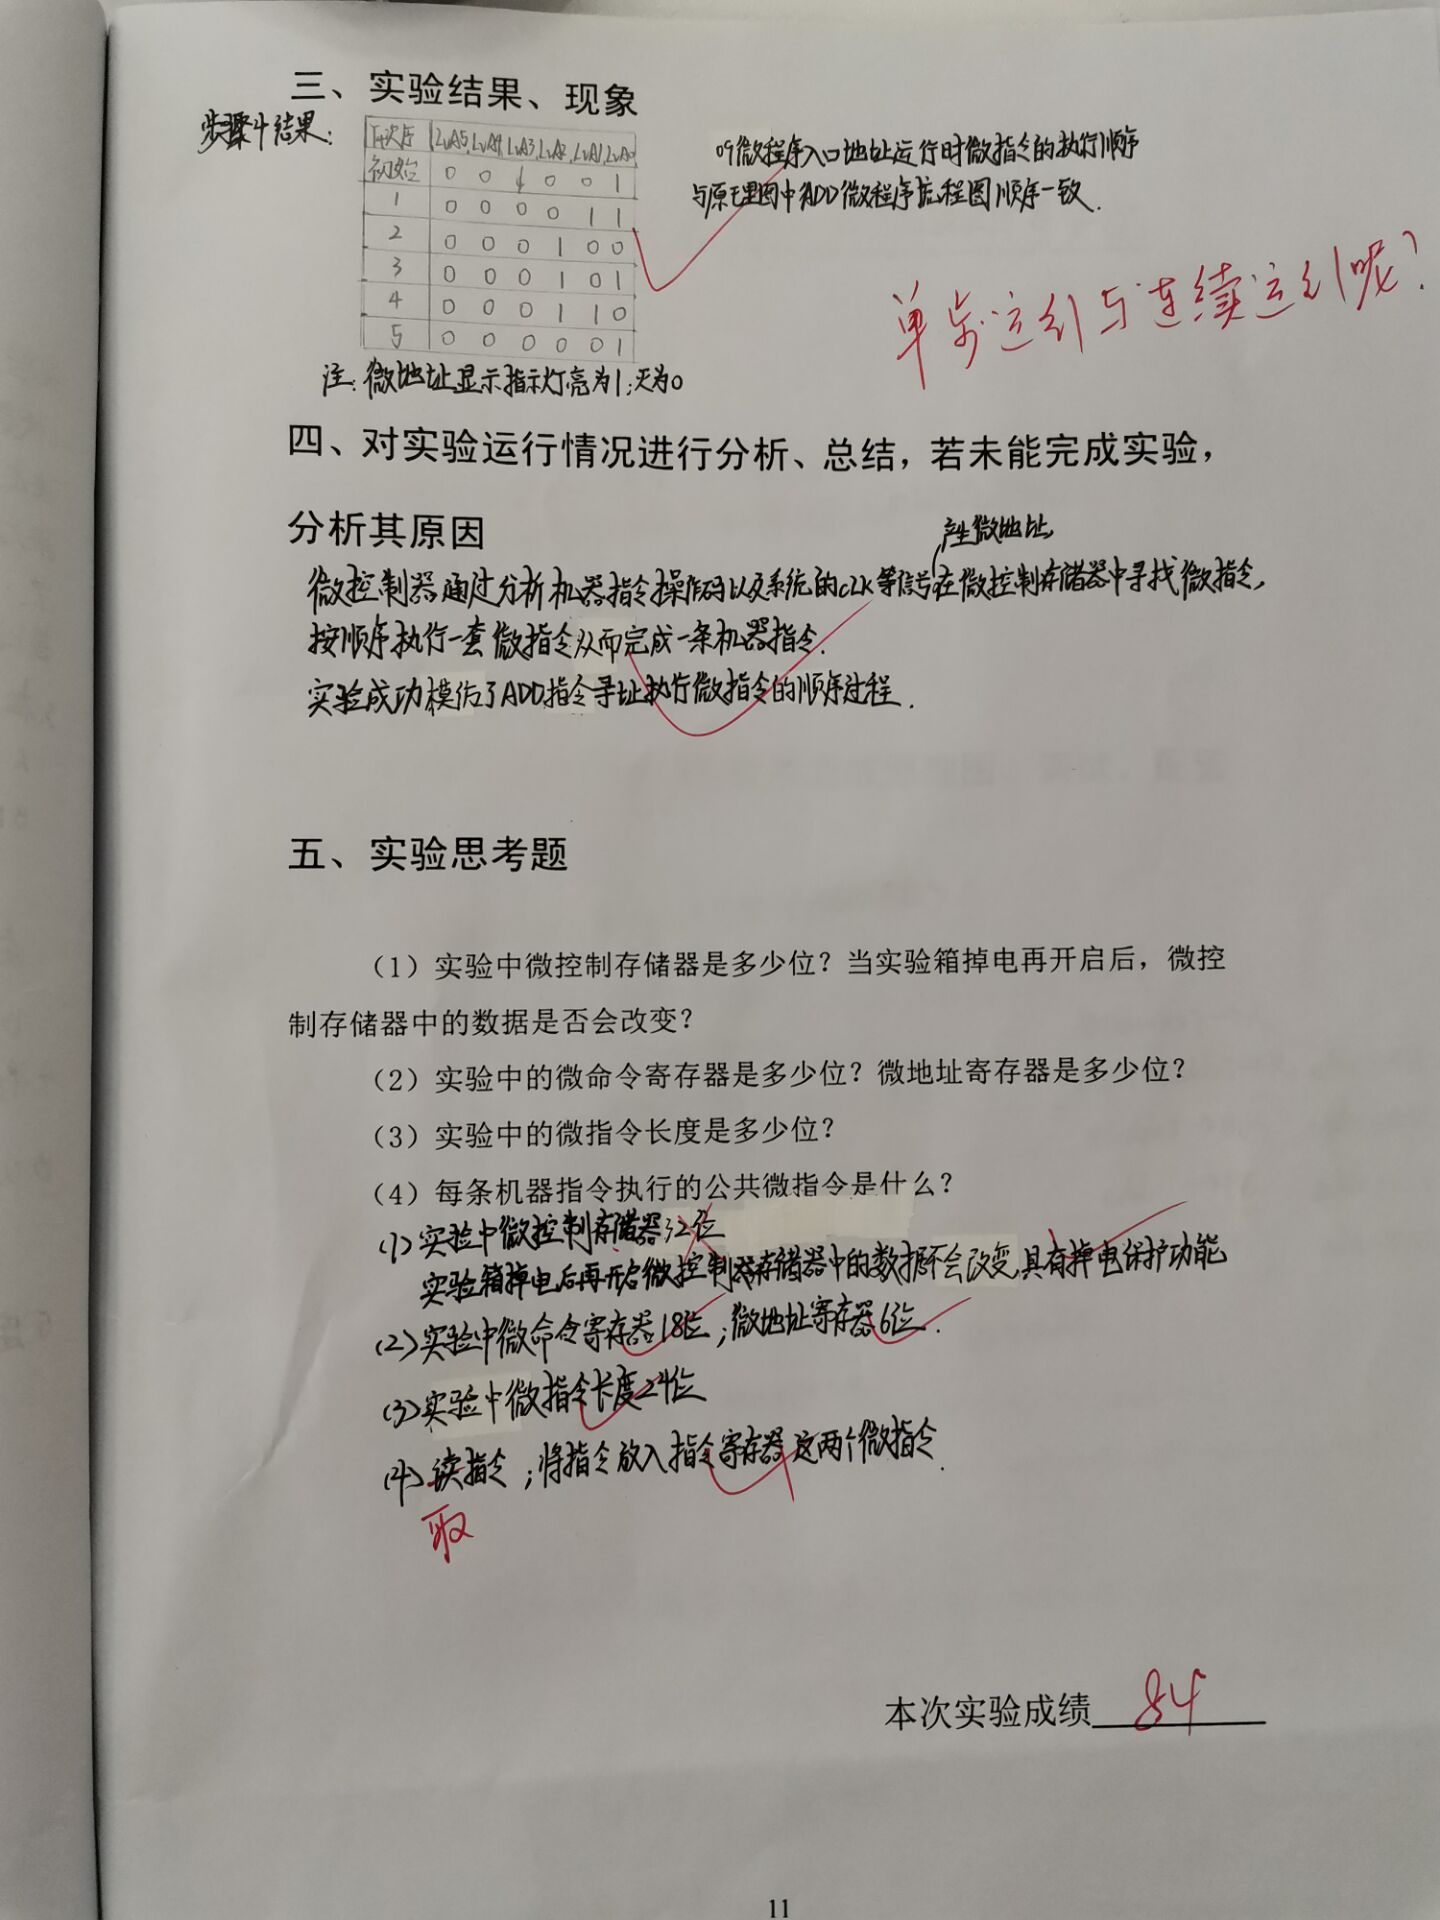 三、实验结果、现象
步骤4结果:
次序 LuA5. LuA4. LuA3. LuA2. LuA1. LuA0
初始 0 0 1 0 0 1
1 0 0 0 0 1 1
2 0 0 0 1 0 0
3 0 0 0 1 0 1
4 0 0 0 1 1 0
5 0 0 0 0 0 1
注:微地址显示指示灯亮为1;灭为0
09微程序入口地址运行时微指令的执行顺序
与原理图中ADD微程序流程图顺序一致.
单步运行与连续运行呢?
四、对实验运行情况进行分析、总结，若未能完成实验，
分析其原因
产生微地址,
微控制器通过分析机器指令操作码以及系统的CLK等信号在微控制存储器中寻找微指令,
按顺序执行一套微指令从而完成一条机器指令.
实验成功模仿了ADD指令寻址执行微指令的顺序过程.
五、实验思考题
（1）实验中微控制存储器是多少位？当实验箱掉电再开启后，微控
制存储器中的数据是否会改变？
（2）实验中的微命令寄存器是多少位？微地址寄存器是多少位？
（3）实验中的微指令长度是多少位？
（4）每条机器指令执行的公共微指令是什么？
(1)实验中微控制存储器32位
实验箱掉电后再开启微控制器存储器中的数据不会改变,具有掉电保护功能
(2)实验中微命令寄存器18位;微地址寄存器6位.
(3)实验中微指令长度24位
(4)读指令;将指令放入指令寄存器这两个微指令.
取
本次实验成绩 84
11